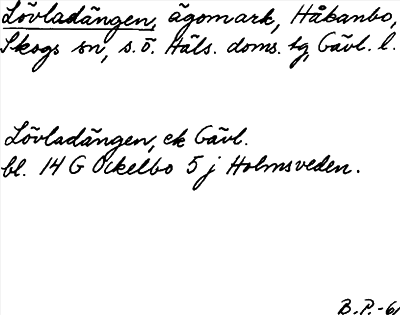 Lövladängen, ägomark, Håkanbo,
Skogs sn, s.ö. Häls. doms. tg, Gävl. l.
Lövladängen, ek Gävl.
bl. 14 G Ockelbo 5 j Holmsveden.
B.P.-61